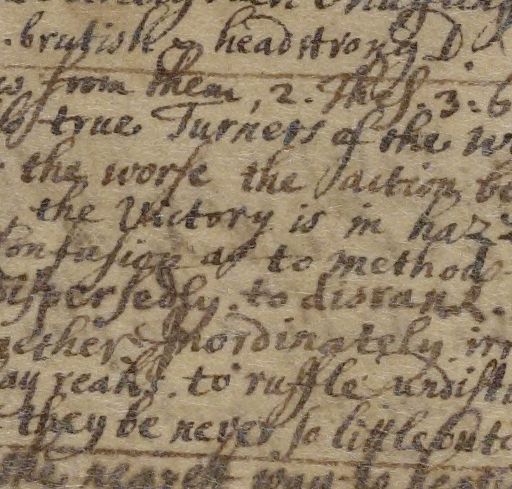 brutish & headstrong D.
from them, 2. Thes. 3. 6
true Turners of the
the worse the action be
the Victory is in haz
Confusion as to method
dispersedly to distant.
gether. Inordinately
reaks to ruffle undist
they be never so little out
the nearest way to